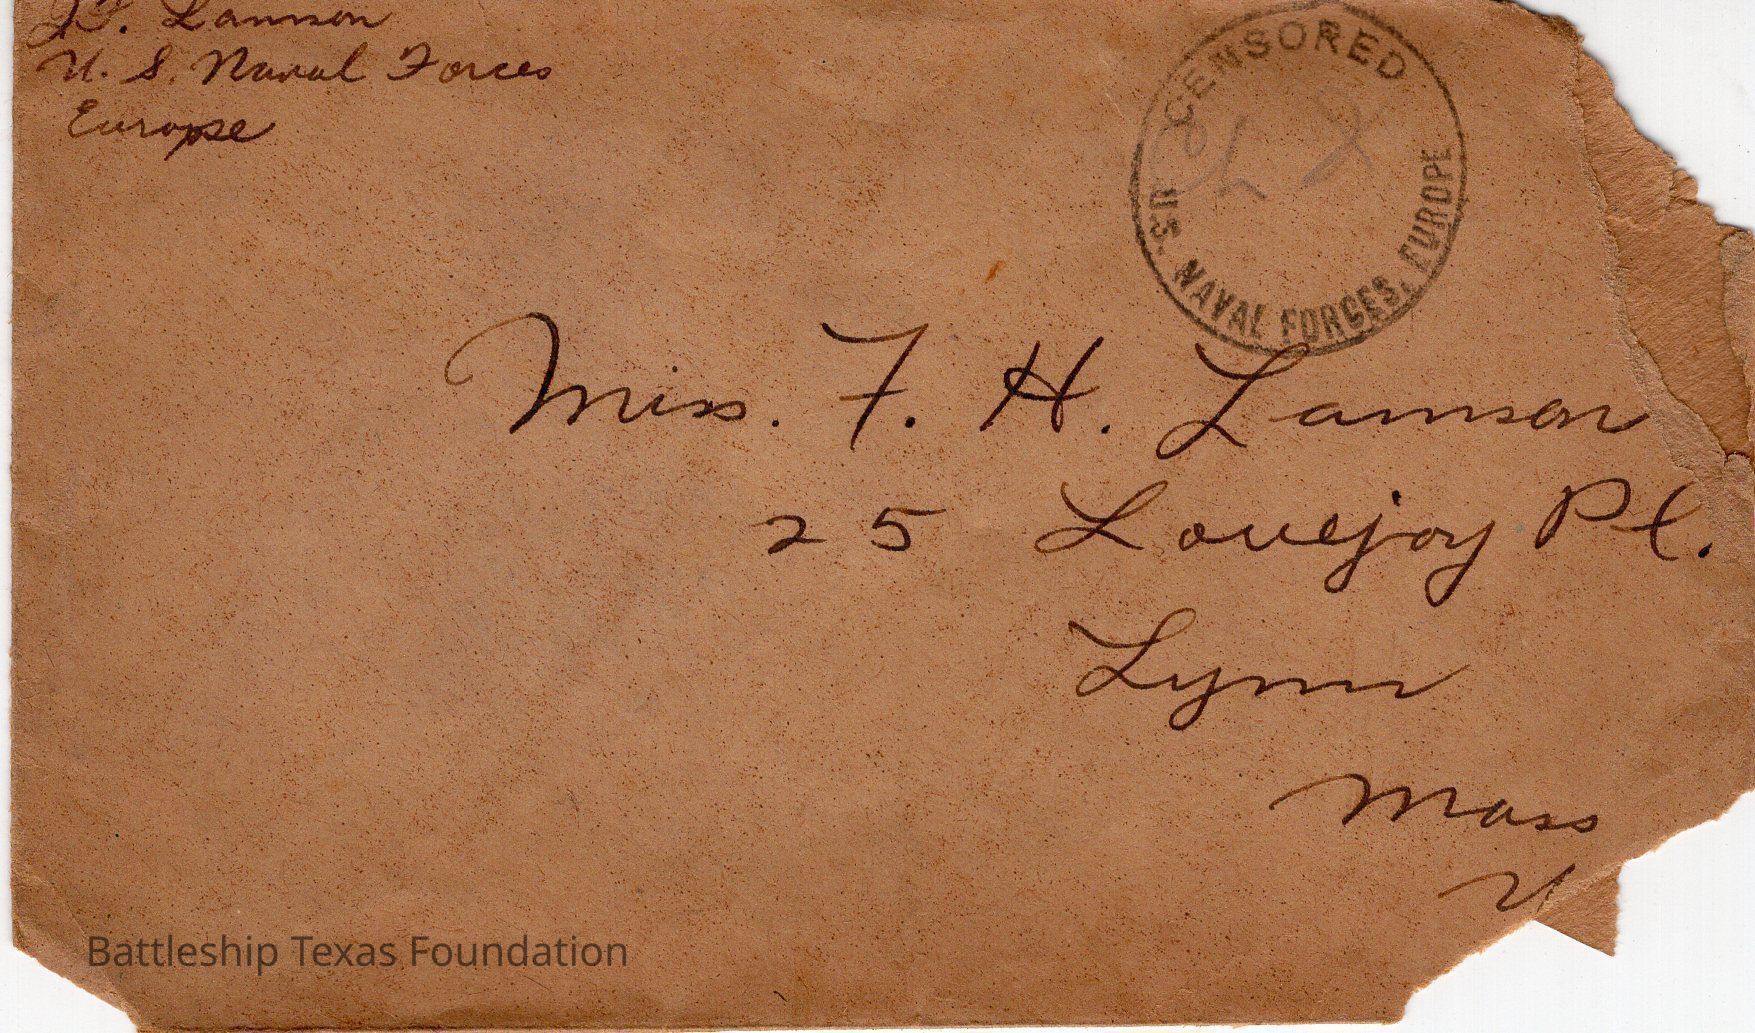 Lamson
U. S. Naval Forces
Europe
CENSORED
U.S. NAVAL FORCES, EUROPE
Miss. F. H. Lamson
25 Lovejoy Pl.
Lynn
Mass
U
Battleship Texas Foundation